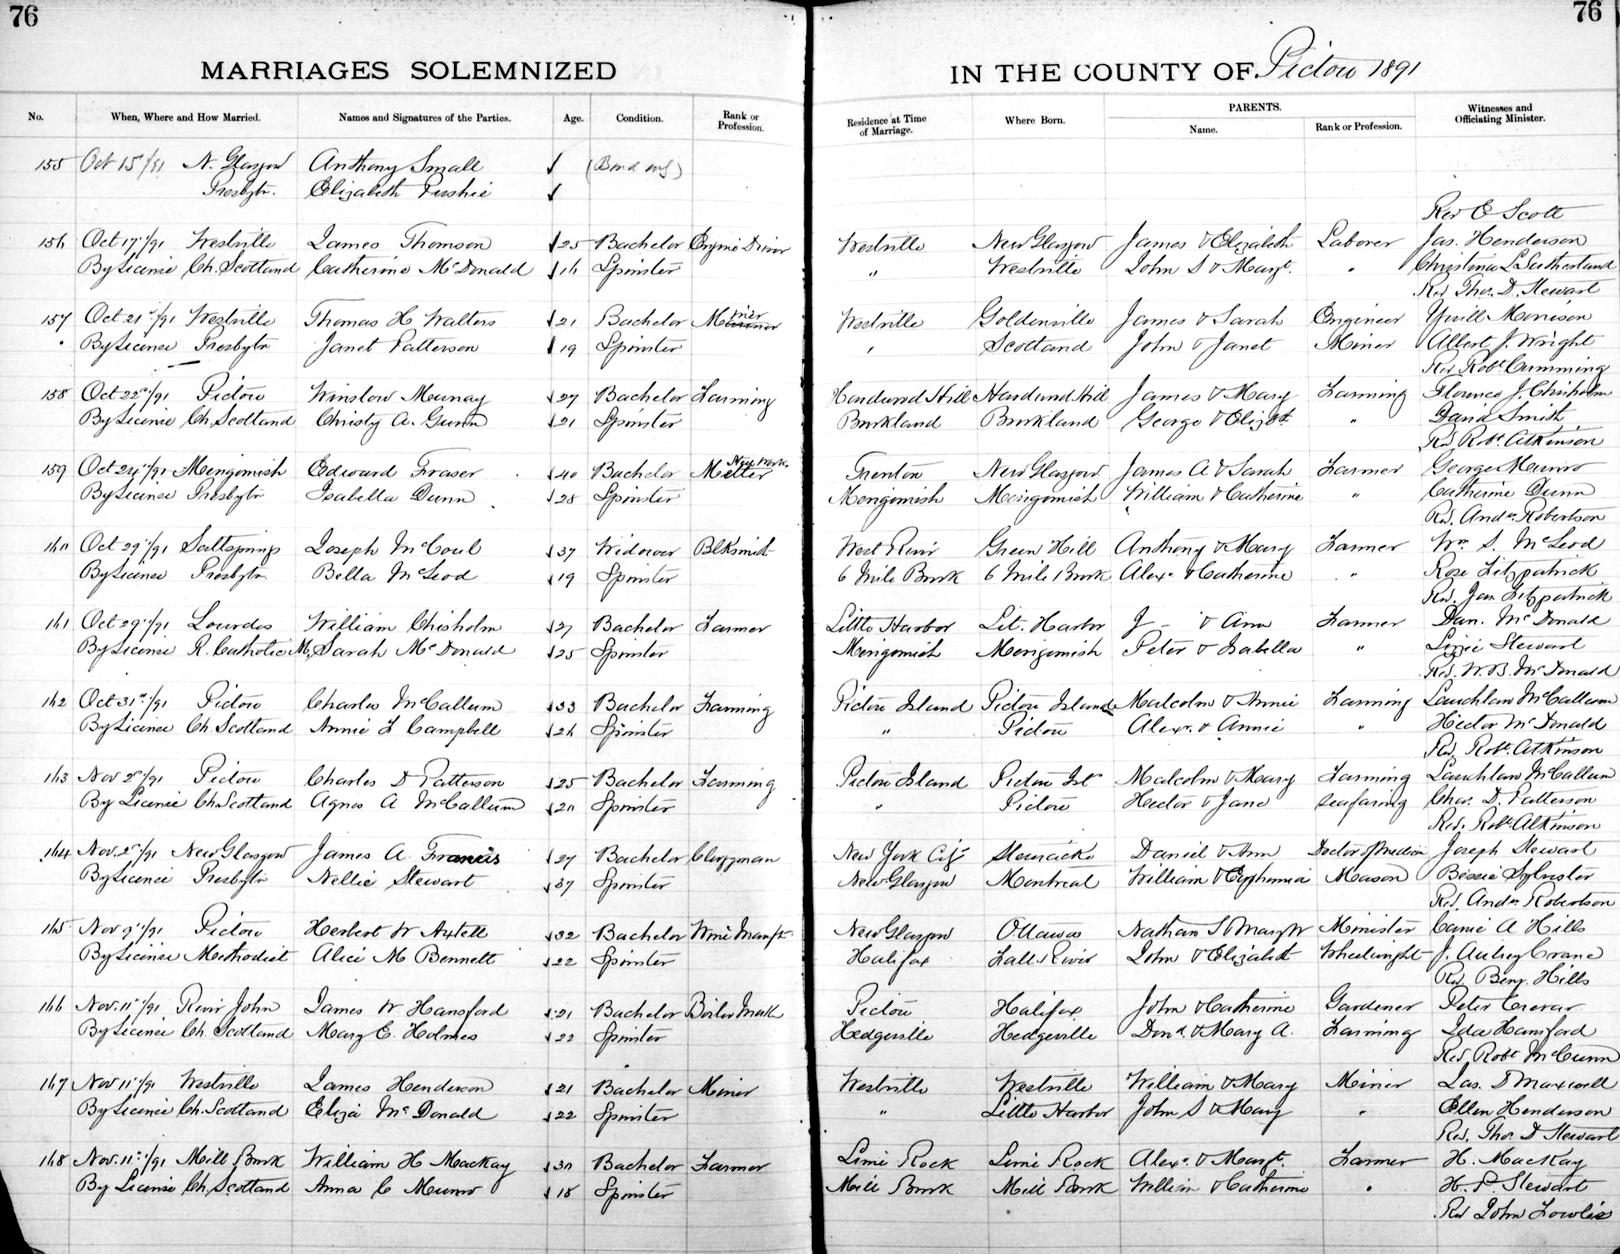 76
76
MARRIAGES SOLEMNIZED
IN THE COUNTY OF Pictou 1891
No. When, Where and How Married. Names and Signatures of the Parties. Age. Condition. Rank or Profession. Residence at Time of Marriage. Where Born. PARENTS. Name. Rank or Profession. Witnesses and Officiating Minister.
155 Oct 15/91 N. Glasgow Anthony Small (Bond only)
Presbytn. Elizabeth
Rev E Scott
156 Oct 17/91 Westville James Thomson 25 Bachelor Engine Driver Westville New Glasgow James & Elizabeth Laborer Jas. Henderson
By License Ch. Scotland Catherine McDonald 16 Spinster " Westville John D & Margt. " Christina L Sutherland
Rev. Tho. D. Stewart
157 Oct 21st/91 Westville Thomas H Walters 21 Bachelor Miner Westville Goldenville James & Sarah Engineer Morrison
By License Presbytn Janet Patterson 19 Spinster " Scotland John & Janet Miner Albert J. Wright
Rev Robt Cumming
158 Oct 22nd/91 Pictou Winslow Murray 27 Bachelor Farming Hardwood Hill Hardwood Hill James & Mary Farming Florence J. Chisholm
By License Ch. Scotland Christy A. Gunn 21 Spinster Brookland Brookland George & Elizbt " David Smith
Rev Robt Atkinson
159 Oct 24/91 Merigomish Edward Fraser 40 Bachelor Trenton New Glasgow James A & Sarah Farmer George Munro
By License Presbytn Isabella Dunn 28 Spinster Merigomish Merigomish William & Catherine " Catherine Dunn
Rev. Andw Robertson
160 Oct 29/91 Saltsprings Joseph McCoul 37 Widower Blksmith West River Green Hill Anthony & Mary Farmer Wm S. McLeod
By License Presbytn Bella McLeod 19 Spinster 6 Mile Brook 6 Mile Brook Alexr & Catherine " Rose Fitzpatrick
Rev. Jas Fitzpatrick
161 Oct 29/91 Lourdes William Chisholm 27 Bachelor Farmer Little Harbor Lit. Harbor J— & Ann Farmer Dan. McDonald
By License R. Catholic My Sarah McDonald 25 Spinster Merigomish Merigomish Peter & Isabella " Lizzie Stewart
Rev. W. B. McDonald
162 Oct 31st/91 Pictou Charles McCallum 33 Bachelor Farming Pictou Island Pictou Island Malcolm & Annie Farming Lauchlan McCallum
By License Ch. Scotland Annie F Campbell 26 Spinster " Pictou Alexr. & Annie " Hector McDonald
Rev. Robt. Atkinson
163 Nov 2nd/91 Pictou Charles D Patterson 25 Bachelor Farming Pictou Island Pictou Isld Malcolm & Mary Farming Lauchlan McCallum
By License Ch Scotland Agnes A McCallum 20 Spinster " Pictou Hector & Jane Seafaring Chas. D. Patterson
Rev. Robt. Atkinson
164 Nov. 2nd/91 New Glasgow James A. Francis 27 Bachelor Clergyman New York City Daniel & Ann Doctor of Medicine Joseph Stewart
By License Presbytn Nellie Stewart 37 Spinster New Glasgow Montreal William & Euphemia Mason Bessie Sylvester
Rev. Andw Robertson
165 Nov 9/91 Pictou Herbert W Axtell 32 Bachelor Wire Manft New Glasgow Ottawa Nathan S & Mary W Minister Carrie A Hills
By License Methodist Alice M Bennett 22 Spinster Halifax Fall River John & Elizabeth Wheelwright J. Autrey Crane
Rev Benj. Hills
166 Nov. 11/91 River John James W Hansford 21 Bachelor Boiler Mak Pictou Halifax John & Catherine Gardener Peter Crerar
By License Ch. Scotland Mary E. Holmes 22 Spinster Hedgeville Hedgeville Dond. & Mary A. Farming Ida Hansford
Rev. Robt McCunn
167 Nov 11/91 Westville James Henderson 21 Bachelor Miner Westville Westville William & Mary Miner Jas. D Maxwell
By License Ch. Scotland Eliza McDonald 22 Spinster " Little Harbor John D & Mary " Ellen Henderson
Rev. Tho. D Stewart
168 Nov. 11/91 Mill Brook William H MacKay 30 Bachelor Farmer Lime Rock Lime Rock Alexr. & Margt. Farmer H. MacKay
By License Ch. Scotland Anna C Munro 18 Spinster Mill Brook Mill Brook William & Catherine " H. P Stewart
Rev John Fowlie